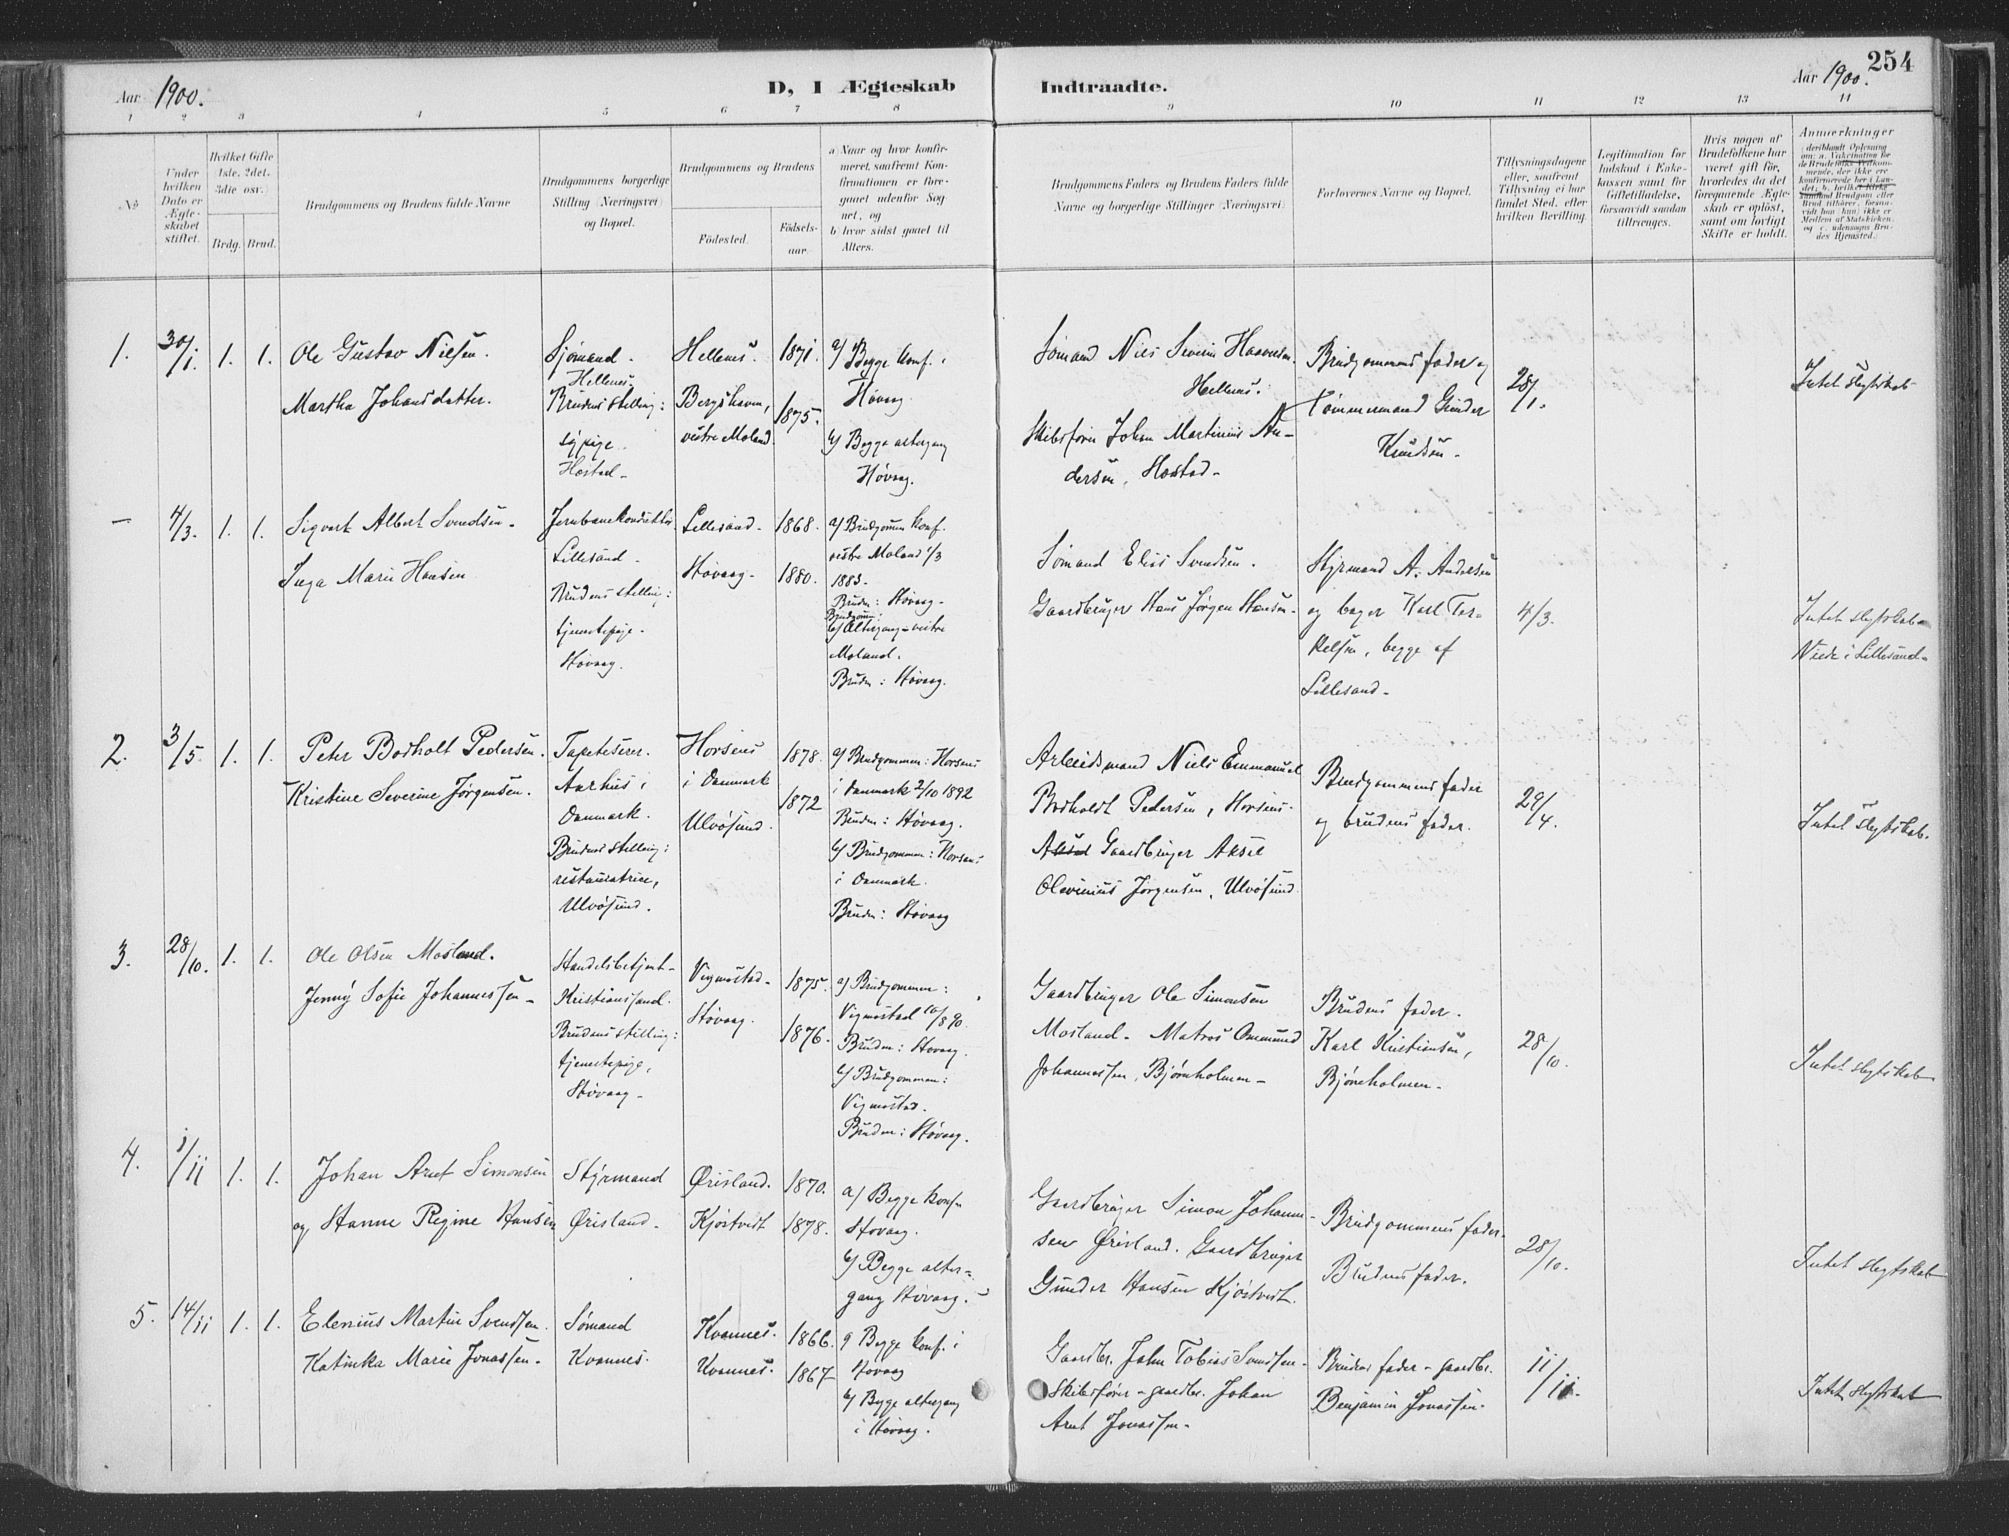 254
Aar 1900.
D, I Ægteskab
Indtraadte.
Aar 1900.
1 2 3 4 5 6 7 8 9 10 11 12 13 14
No
Under
hvilken
Dato er
Ægte-
skabet
stiftet.
Hvilket Gifte
(1ste, 2det,
3die osv.)
Brdg. Brud.
Brudgommens og Brudens fulde Navne
Brudgommens borgerlige
Stilling (Næringsvei)
og Bopæl.
Brudgommens og Brudens
Födested.
Födsels-
aar.
a Naar og hvor konfir-
meret, saafremt Kon-
firmationen er fore-
gaaet udenfor Sog-
net, og
b hvor sidst gaaet til
Alters.
Brudgommens Faders og Brudens Faders fulde
Navne og borgerlige Stillinger (Næringsvei)
Forlovernes Navne og Bopæl.
Tillysningsdagene
eller, saafremt
Tillysning ei har
fundet Sted, efter
hvilken Bevilling.
Legitimation for
Indskud i Enke-
kassen samt for
Giftetilladelse,
forsaavidt saadan
tiltrænges.
Hvis nogen af
Brudefolkene har
været gift för,
hvorledes da det
foregaaende Ægte-
skab er oplöst,
samt om lovligt
Skifte er holdt.
Anmerkninger
1. 30/1 1. 1.
Ole Gustav Nielsen.
Martha Johansdatter.
Sjømand.
Hellenes.
Brudens stilling:
sypige.
Hæstad-
Hellenes. 1871.
Bergshavn,
vestre Moland. 1875.
a/ Begge konf. i
Høvaag.
b/ Begge altergang
Høvaag.
Sømand Niels Severin Haavesen
Hellenes.
Skibsfører Johan Martinius An-
dersen, Hæstad-
Brudgommens fader og
Tømmermand Gunder
Knudsen-
28/1.
Intet slegtskab
- 4/3. 1. 1.
Sigvart Albert Svendsen-
Inga Marie Hansen
Jernbanekonduktør
Lillesand-
Brudens stilling:
tjenestepige-
Høvaag.
Lillesand- 1868.
Høvaag- 1880.
a/ Brudgommen konf.
vestre Moland 1/3
1883-
Bruden: Høvaag-
Brudgom:
b/ Altergang-vestre
Moland.
Bruden: Høvaag.
Sømand Elias Svendsen.
Gaardbruger Hans Jørgen Hansen-
Styrmand A. Andersen
og bager Karl Ter-
kelsen, begge af
Lillesand-
4/3.
Intet slegtskab-
Viede i Lillesand-
2. 3/5. 1. 1.
Peter Bodholt Pedersen.
Kristine Severine Jørgensen.
Tapetserer.
Aarhus i
Danmark.
Brudens stilling:
restauratrice,
Ulvøsund.
Horsens
i Danmark 1878.
Ulvøsund. 1872
a/ Brudgommen: Horsens
i Danmark 2/10 1892
Bruden: Høvaag.
b/ Brudgommen: Horsens
i Danmark.
Bruden: Høvaag
Arbeidsmand Niels Emmanuel
Bodholdt Pedersen, Horsens.
Gaardbruger Aksel
Olevinius Jørgensen, Ulvøsund
Brudgommens fader
og brudens fader.
29/4.
Intet slegtskab.
3. 28/10. 1. 1.
Ole Olsen Mosland.
Jenny Sofie Johannessen-
Handelsbetjent-
Kristianssand.
Brudens stilling:
tjenestepige,
Høvaag-
Vigmostad- 1875.
Høvaag. 1876.
a/ Brudgommen:
Vigmostad 10/8 90.
Bruden: Høvaag.
b/ Brudgommen:
Vigmostad.
Bruden: Høvaag.
Gaardbruger Ole Simonsen
Mosland- Matros Ommund
Johannessen, Bjørnholmen-
Brudens fader.
Karl Kristensen,
Bjørneholmen-
28/10.
Intet slegtskab
4. 1/11 1. 1.
Johan Arnt Simonsen
og Hanne Regine Hansen
Styrmand
Ørisland-
Ørisland. 1870.
Kjøstvedt 1878.
a/ Begge konf-
Høvaag.
b/ Begge alter-
gang Høvaag.
Gaardbruger Simon Johann-
sen Ørisland. Gaardbruger
Gunder Hansen Kjøstvedt.
Brudgommens fader.
Brudens fader.
28/10.
Intet slegtskab
5. 14/11 1. 1.
Elenius Martin Svendsen.
Katinka Marie Jonassen-
Sømand
Kvannes.
Kvannes. 1866.
Kvannes. 1867
a Begge konf. i
Høvaag
b/ Begge altergang
i Høvaag.
Gaardbr. John Tobias Svendsen-
Skibsfører-gaardbr. Johan
Arnt Jonassen-
Brudens fader-gaardbr.
Benjamin Jonassen-
11/11.
Intet slegtskab